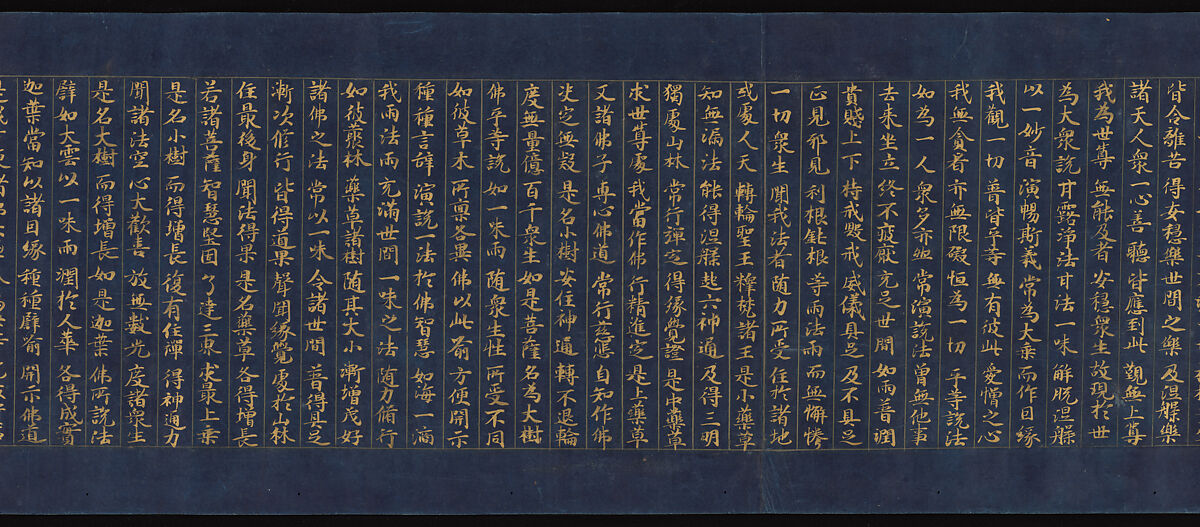 皆令離苦 得安穩樂 世間之樂 及涅槃樂
諸天人衆 一心善聽 皆應到此 覲無上尊
我為世尊 無能及者 安穩衆生 故現於世
為大衆說 甘露淨法 其法一味 解脫涅槃
以一妙音 演暢斯義 常為大乘 而作因緣
我觀一切 普皆平等 無有彼此 愛憎之心
我無貪著 亦無限礙 恒為一切 平等說法
如為一人 衆多亦然 常演說法 曾無他事
去来坐立 終不疲厭 充足世間 如雨普潤
貴賤上下 持戒毀戒 威儀具足 及不具足
正見邪見 利根鈍根 等雨法雨 而無懈惓
一切衆生 聞我法者 随力所受 住於諸地
或處人天 轉輪聖王 釋梵諸王 是小藥草
知無漏法 能得涅槃 起六神通 及得三明
獨處山林 常行禪定 得緣覺證 是中藥草
求世尊處 我當作佛 行精進定 是上藥草
又諸佛子 專心佛道 常行慈悲 自知作佛
决定無疑 是名小樹 安住神通 轉不退輪
度無量億 百千衆生 如是菩薩 名為大樹
佛平等說 如一味雨 随衆生性 所受不同
如彼草木 所稟各異 佛以此喻 方便開示
種種言辞 演說一法 於佛智慧 如海一滴
我雨法雨 充滿世間 一味之法 随力脩行
如彼叢林 藥草諸樹 随其大小 漸增茂好
諸佛之法 常以一味 令諸世間 普得具足
漸次修行 皆得道果 聲聞緣覺 處於山林
住最後身 聞法得果 是名藥草 各得增長
若諸菩薩 智慧堅固 了達三界 求最上乘
是名小樹 而得增長 復有住禪 得神通力
聞諸法空 心大歡喜 放無數光 度諸衆生
是名大樹 而得增長 如是迦葉 佛所說法
譬如大雲 以一味雨 潤於人華 各得成實
迦葉當知 以諸因緣 種種譬喻 開示佛道